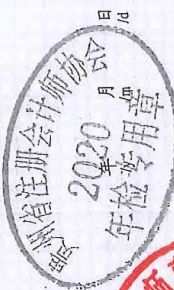 贵州省注册会计师协会
2020
年 月 日
/m /d
年检专用章